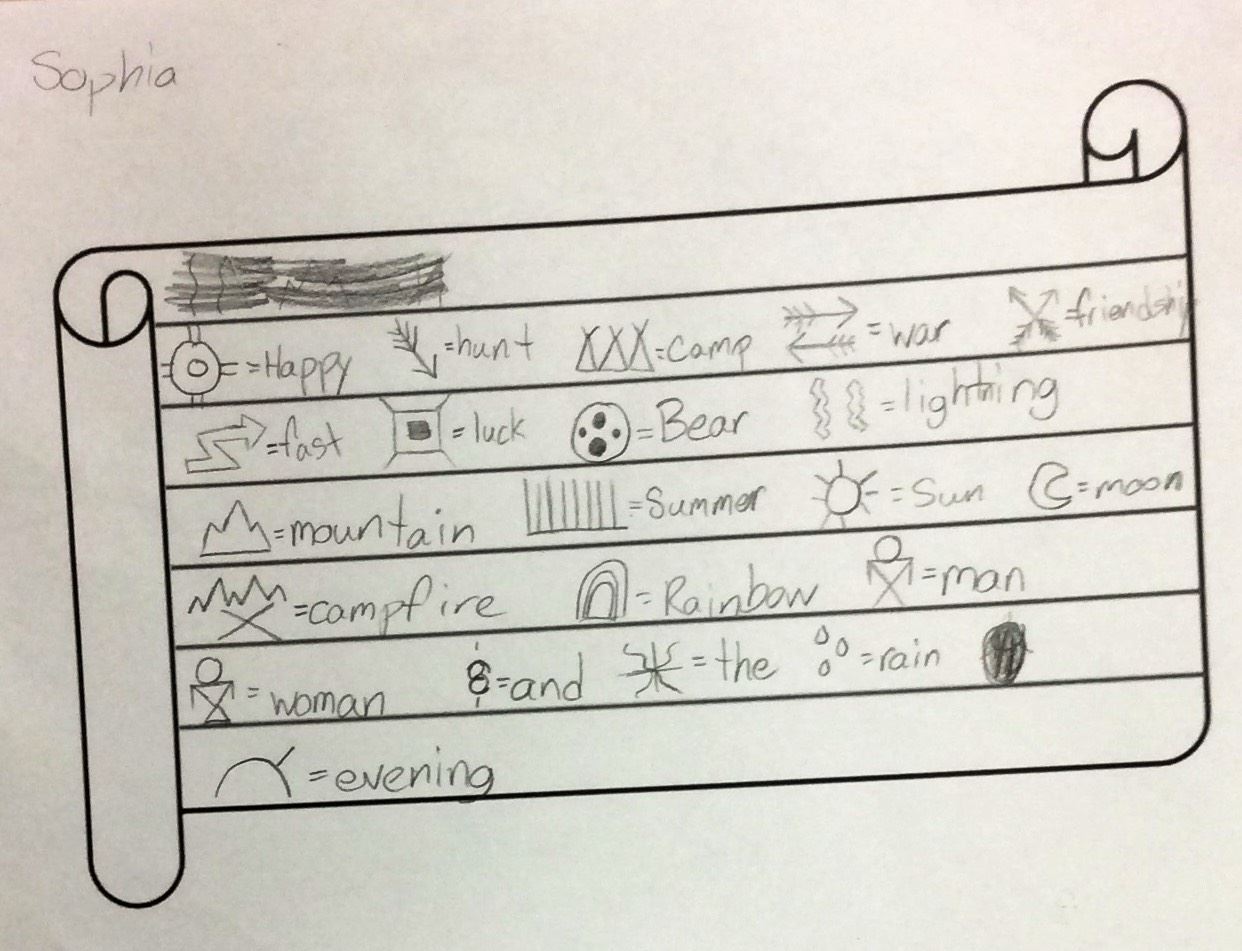 Sophia
=Happy =hunt =Camp =war =friendship
=fast =luck =Bear =lightning
=mountain =Summer =Sun =moon
=campfire =Rainbow =man
=woman =and =the =rain
=evening